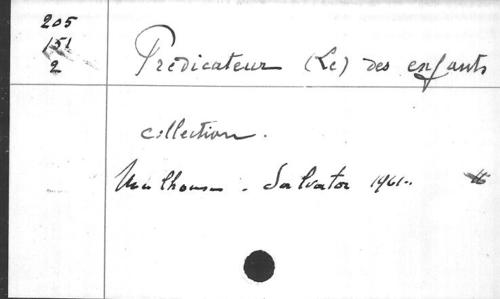 205
151
2
Prédicateur (Le) des enfants
collection.
Mulhouse. Salvator 1961.